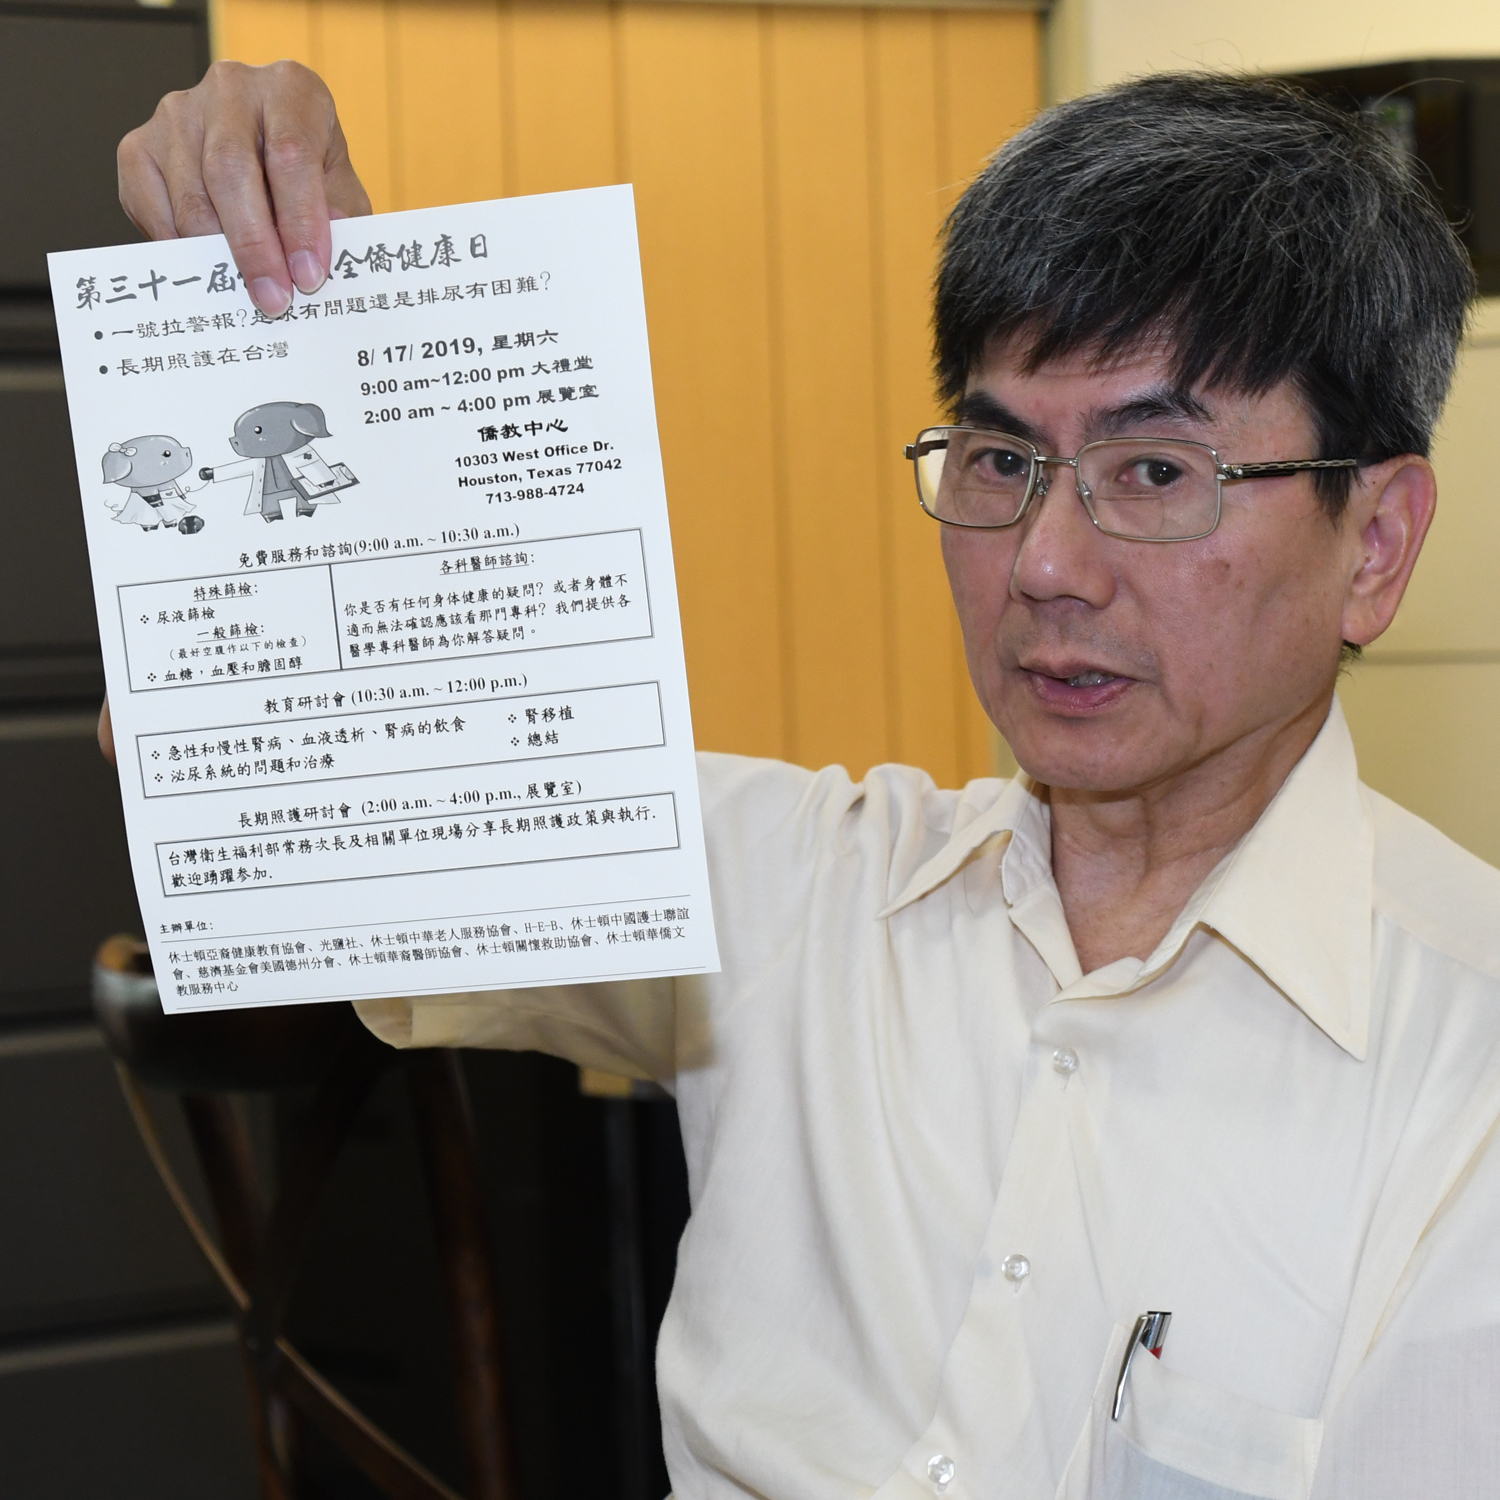 第三十一屆 全僑健康日
• 一號拉警報?是尿有問題還是排尿有困難?
• 長期照護在台灣
8/ 17/ 2019, 星期六
9:00 am~12:00 pm 大禮堂
2:00 am ~ 4:00 pm 展覽室
僑教中心
10303 West Office Dr.
Houston, Texas 77042
713-988-4724
免費服務和諮詢(9:00 a.m. ~ 10:30 a.m.)
特殊篩檢:
❖ 尿液篩檢
一般篩檢:
(最好空腹作以下的檢查)
❖ 血糖，血壓和膽固醇
各科醫師諮詢:
你是否有任何身体健康的疑問? 或者身體不
適而無法確認應該看那門專科? 我們提供各
醫學專科醫師為你解答疑問。
教育研討會 (10:30 a.m. ~ 12:00 p.m.)
❖ 急性和慢性腎病、血液透析、腎病的飲食
❖ 泌尿系統的問題和治療
❖ 腎移植
❖ 總結
長期照護研討會 (2:00 a.m. ~ 4:00 p.m., 展覽室)
台灣衛生福利部常務次長及相關單位現場分享長期照護政策與執行.
歡迎踴躍參加.
主辦單位:
休士頓亞裔健康教育協會、光鹽社、休士頓中華老人服務協會、H-E-B、休士頓中國護士聯誼
會、慈濟基金會美國德州分會、休士頓華裔醫師協會、休士頓關懷救助協會、休士頓華僑文
教服務中心